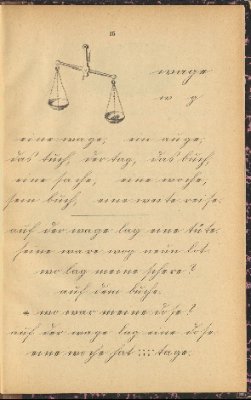 15
wage
w g
eine wage, ein auge,
das tuch, der tag, das buch,
eine sache, eine woche,
sein buch, eine weite reise.
auf der wage lag eine tüte.
seine ware wog neun lot.
wo lag meine schere?
auf dem buche.
wo war meine dose?
auf der wage lag eine dose.
eine woche hat :::· tage.